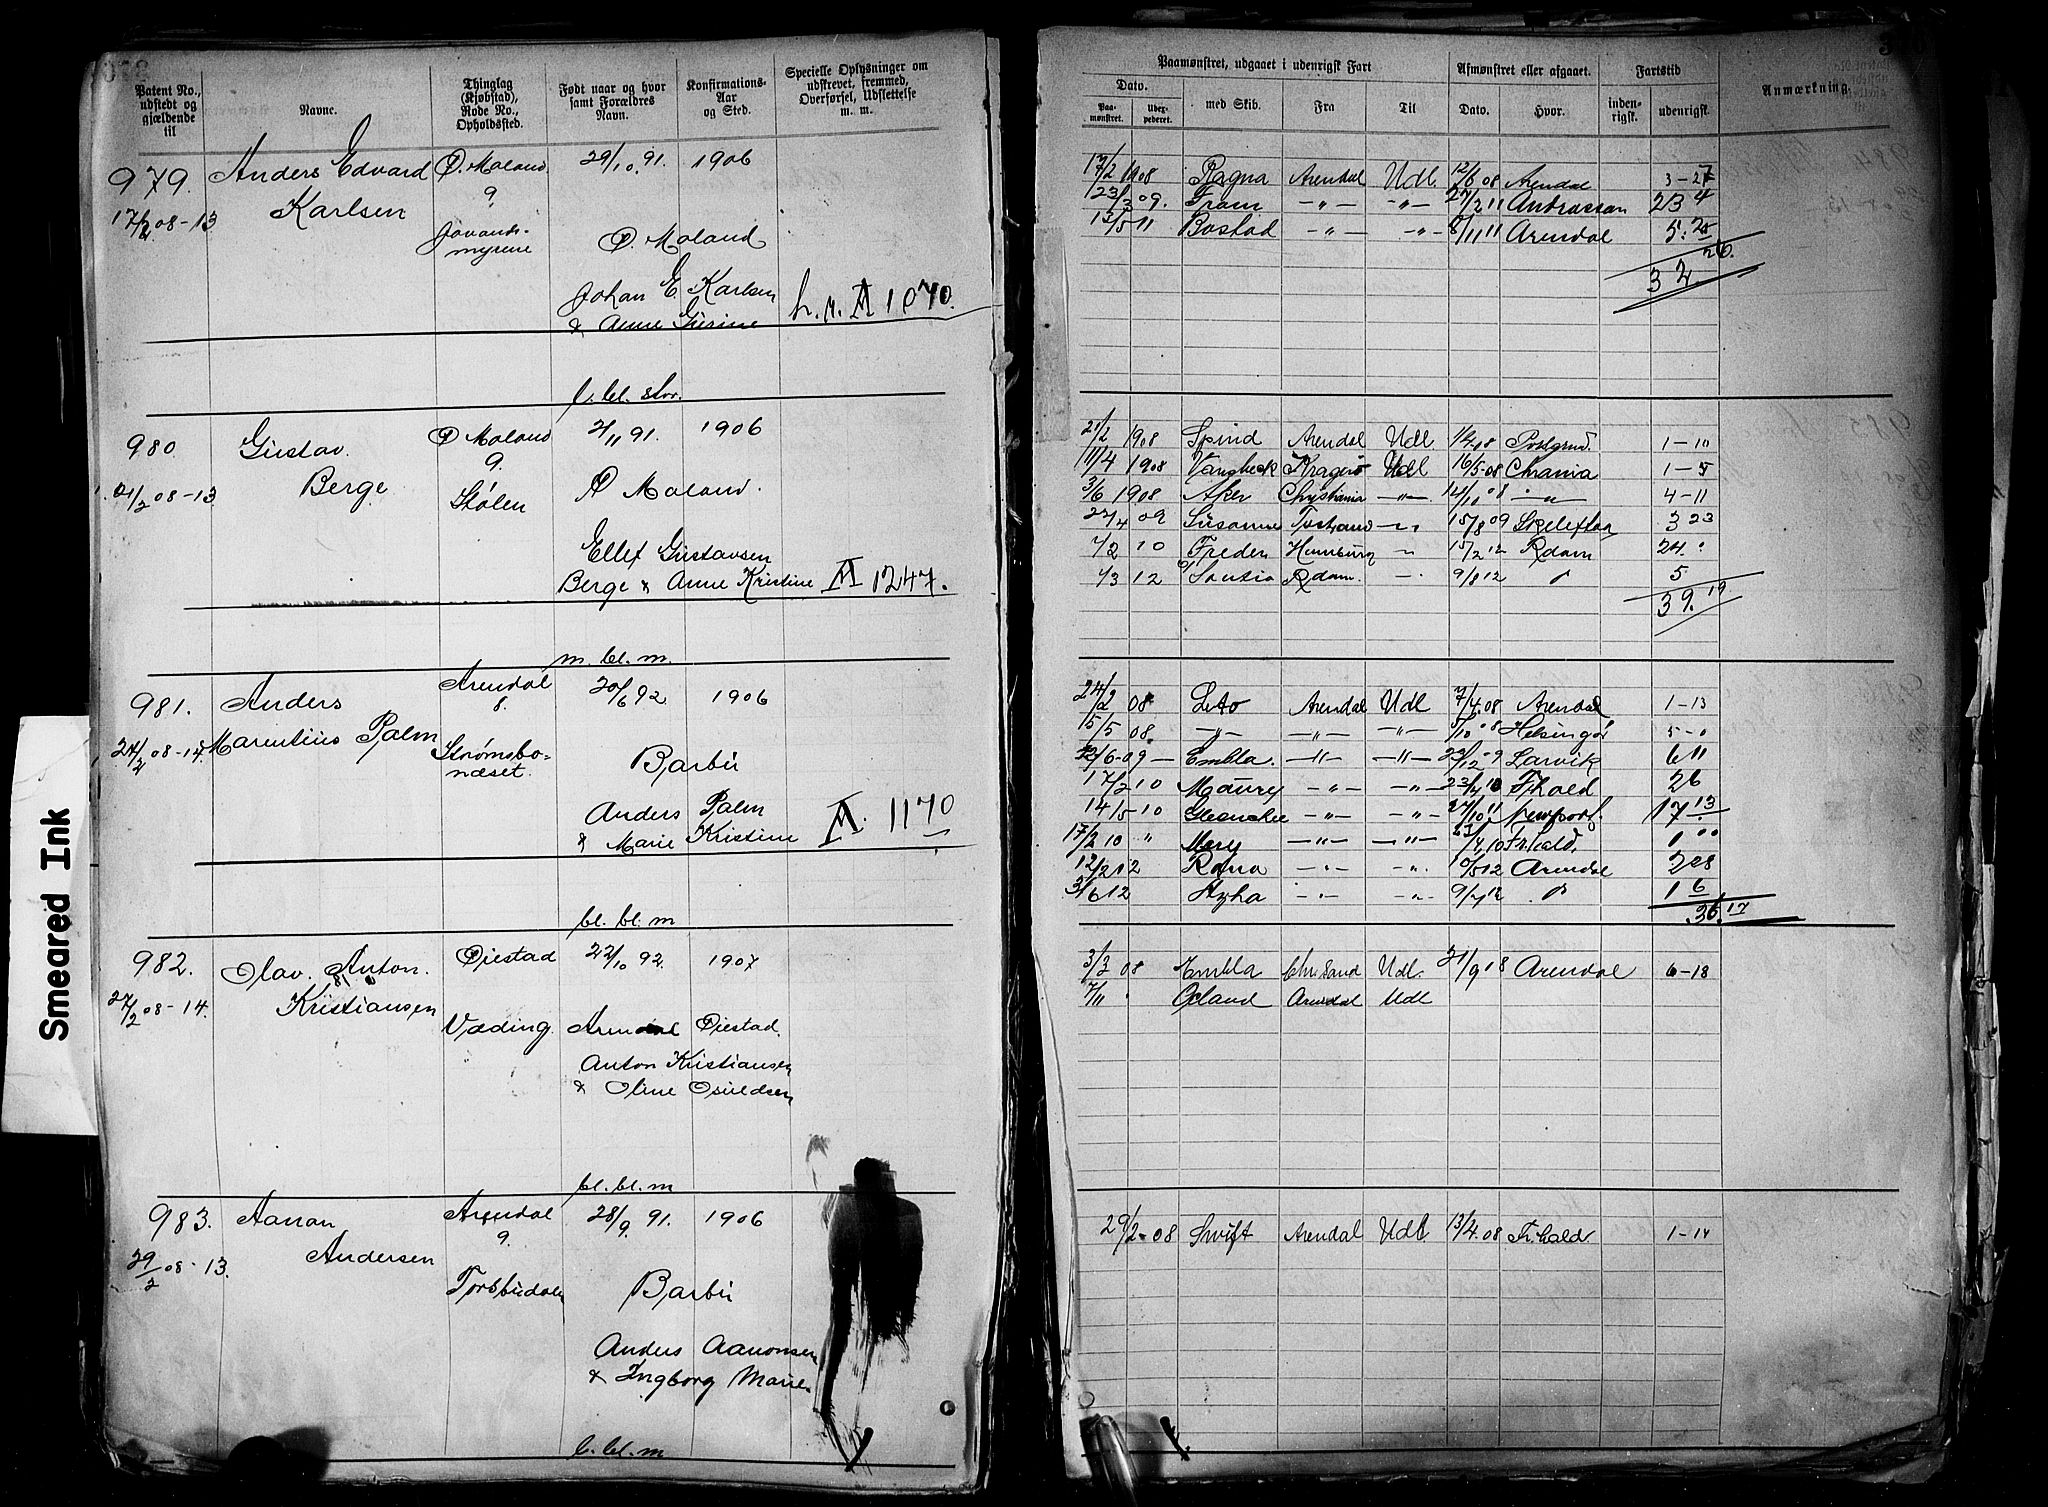 Patent No., udstedt og gjældende til
Navne.
Thinglag (Kjøbstad), Rode No., Opholdssted.
Født naar og hvor samt Forældres Navn.
Konfirmations-Aar og Sted.
Specielle Oplysninger om udskrevet, fremmed, Overførsel, Udslettelse m. m.
979. Anders Edvard Ø. Moland 29/10.91. 1906
17/2.08-13 Karlsen 9
Ø. Moland
myrene
Johan E. Karlsen
& Anne Gurine A 1070.
l. bl. stor.
980 Gustav Ø Moland 2/11 91. 1906
Berge 9.
21/2 08-13. Stølen Ø Moland.
Ellef Gustavsen
Berge & Anne Kristine A 1247.
m. bl. m.
981. Anders Arendal 20/6 92 1906
8.
24/2 08-14. Marentius Palm Strømsbo-
næset. Barbu
Anders Palm
& Marie Kristine A. 1170
bl. bl. m
982. Olav. Anton. Øiestad 22/10 92. 1907
27/2 08-14. Kristiansen
Væding. Arendal Øiestad.
Anton Kristiansen
& Oline Osuldsen
bl. bl. m
983. Aanon Arendal 28/9. 91. 1906
9.
29/2 08-13. Andersen
Torsbudalen Barbu
Anders Aanonsen
& Ingborg Marie.
b. bl. m
Smeared Ink
Paamønstret, udgaaet i udenrigsk Fart
Afmønstret eller afgaaet.
Fartstid
Anmærkning.
Dato.
Paa-mønstret.
med Skib.
Fra
Til
Dato.
Hvor.
inden-rigsk.
udenrigsk.
17/2 1908 Ragna Arendal Udl. 12/6 08 Arendal 3-27
23/3 09. Fram -"- -"- 27/2 11 23 4
13/5 11 Bostad -"- -"- 8/11 11 Arendal 5. 25
32 26.
21/2 1908 Spind Arendal Udl 1/4.08 1-10
11/4 1908 Kragerø Udl 16/5.08 Chrania 1-5
3/6 1908 Aker Christiania -"- 14/10 08 -"- 4-11
22/4 09 Susanne 15/8 09 3 23
1/2 10 Freden Hamburg 15/2 12 Rdam 24.
1/3 12 Rdam. 9/8 12 5
39. 19
24/2 08 Leto Arendal Udl 7/4.08 Arendal 1-13
15/5 08. -"- -"- -"- 5/10 08 Helsingør 5-0
22/6-09 Embla. -"- -"- 22/12 09 Larvik 6 11
17/2 10 -"- -"- 23/4 10 Frhald 2 6
14/5-10 -"- -"- 27/10 11 Newport. 17 13
17/2 10 " -"- -"- Frhald.
12/2 12 -"- -"- 10/5 12 Arendal 2 28
3/6 12 -"- -"- 9/7 12 1 6
36. 17
3/3 08 Embla Chrsand Udl. 21/9 08 Arendal 6-18
7/11 Øland Arendal Udl
29/2-08 Swift Arendal Udl. 13/4.08 Fr.hald. 1-14